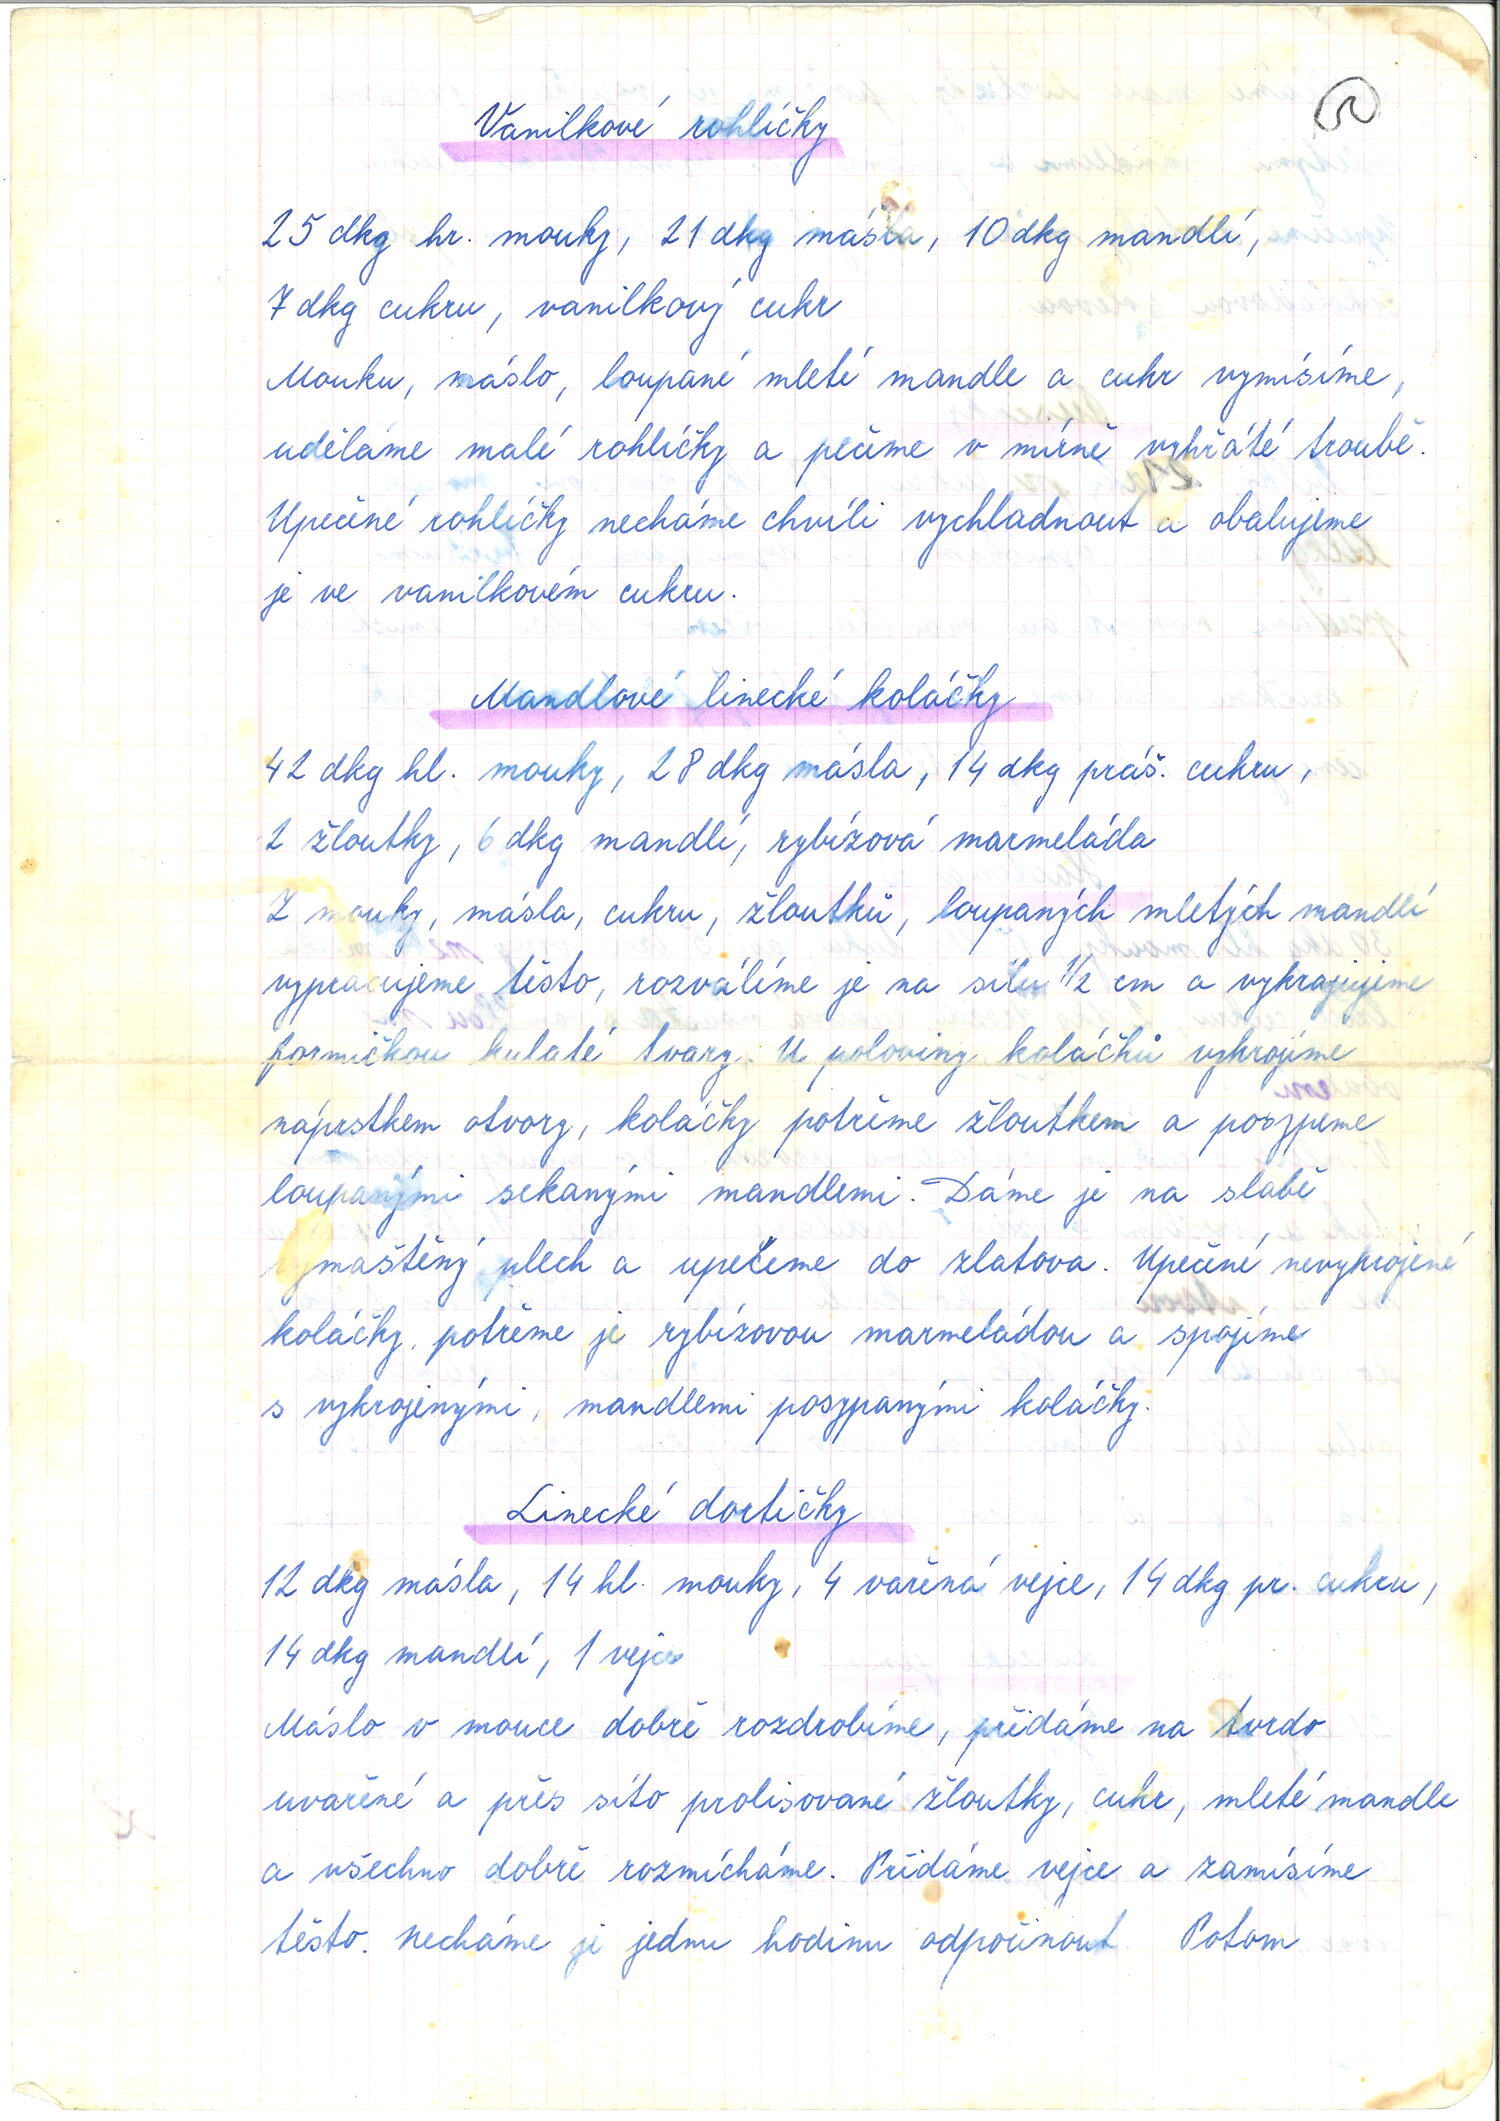 Vanilkové rohlíčky
25 dkg hr. mouky, 21 dkg másla, 10 dkg mandlí,
7 dkg cukru, vanilkový cukr
Mouku, máslo, loupané mleté mandle a cukr vymísíme,
uděláme malé rohlíčky a pečeme v mírně vyhřáté troubě.
Upečené rohlíčky necháme chvíli vychladnout a obalujeme
je ve vanilkovém cukru.
Mandlové linecké koláčky
42 dkg hl. mouky, 28 dkg másla, 14 dkg práš. cukru,
2 žloutky, 6 dkg mandlí, rybízová marmeláda
Z mouky, másla, cukru, žloutků, loupaných mletých mandlí
vypracujeme těsto, rozválíme je na sílu 1/2 cm a vykrajujeme
formičkou kulaté tvary. U poloviny koláčků vykrojíme
náprstkem otvory, koláčky potřeme žloutkem a posypeme
loupanými sekanými mandlemi. Dáme je na slabě
vymaštěný plech a upečeme do zlatova. Upečené nevykrojené
koláčky, potřeme je rybízovou marmeládou a spojíme
s vykrojenými, mandlemi posypanými koláčky.
Linecké dortičky
12 dkg másla, 14 hl. mouky, 4 vařená vejce, 14 dkg pr. cukru,
14 dkg mandlí, 1 vejce
Máslo v mouce dobře rozdrobíme, přidáme na tvrdo
uvařené a přes síto prolisované žloutky, cukr, mleté mandle
a všechno dobře rozmícháme. Přidáme vejce a zamísíme
těsto. Necháme je jednu hodinu odpočinout. Potom